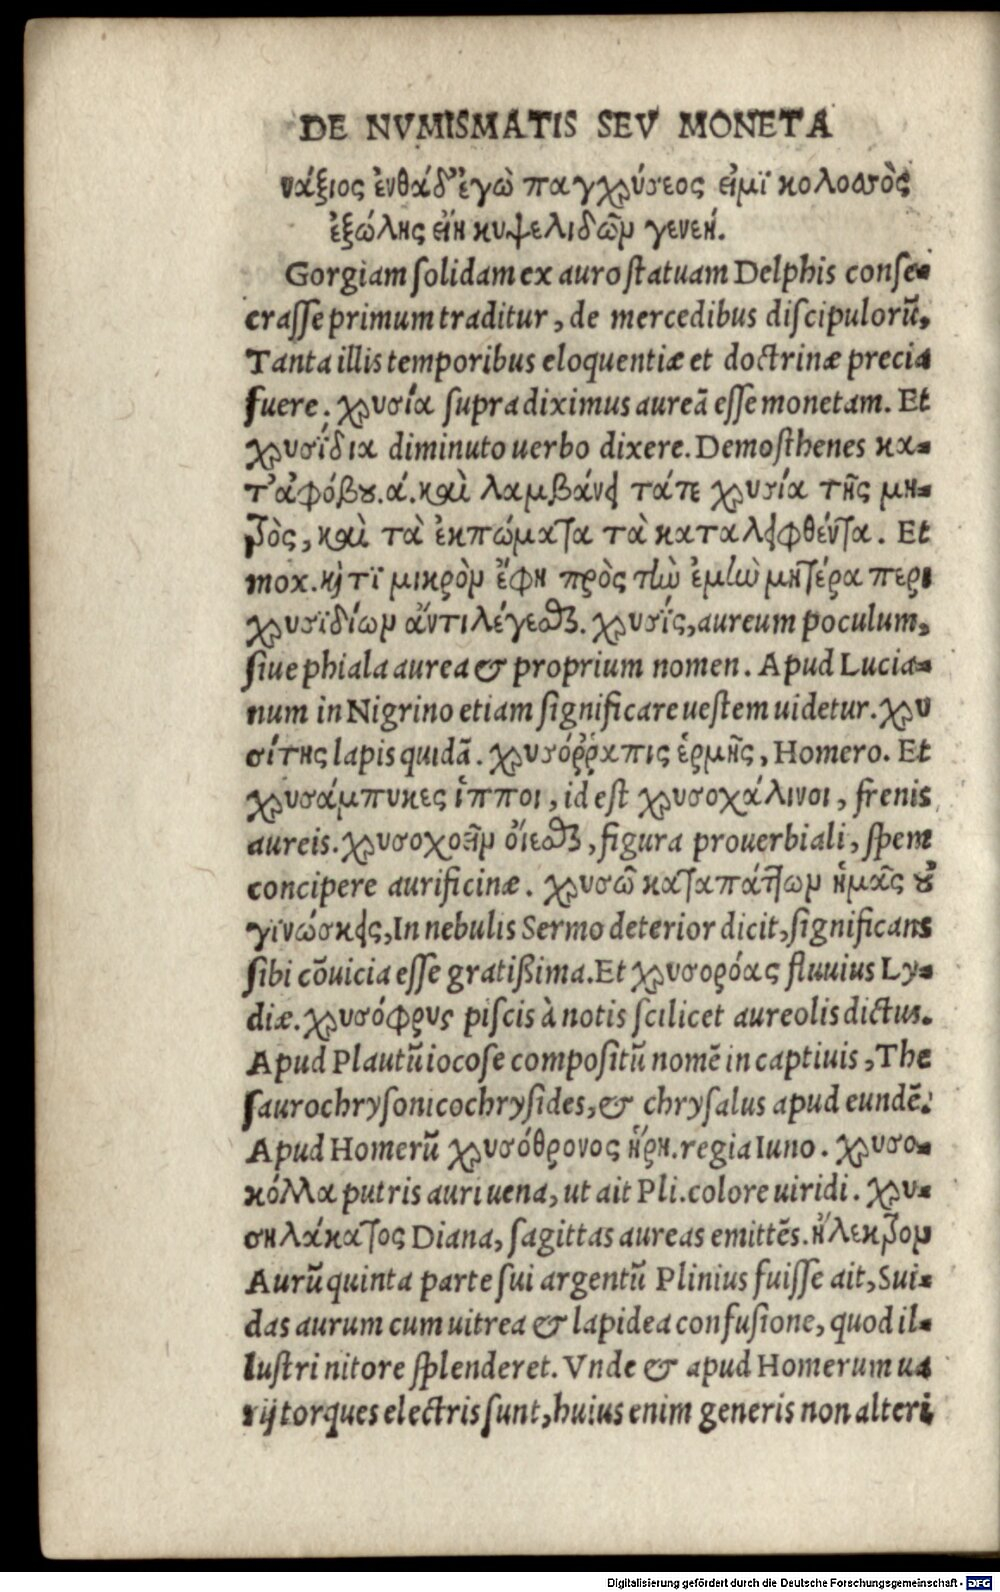 DE NVMISMATIS SEV MONETA
νάξιος ἐνθάδ' ἐγὼ παγχρύσεος εἰμῒ κολοσσὸς
ἐξώλης εἴη κυψελιδῶμ γενεή.
Gorgiam ſolidam ex auro ſtatuam Delphis conſe-
craſſe primum traditur, de mercedibus diſcipulorũ,
Tanta illis temporibus eloquentiæ et doctrinæ precia
fuere. χρυσία ſupra diximus aureã eſſe monetam. Et
χρυσίδια diminuto uerbo dixere. Demoſthenes κα-
τ' ἀφόβου.ά. καὶ λαμβάνει τάτε χρυσία τῆς μη-
τρὸς, καὶ τὰ ἐκπώματα τὰ καταλειφθέντα. Et
mox. καὶ τῒ μικρὸμ ἔφη πρὸς τὼ ἐμὼ μητέρα περι
χρυσϊδίωμ ἀντιλέγεσθαι. χρυσίς, aureum poculum,
ſiue phiala aurea & proprium nomen. Apud Lucia-
num in Nigrino etiam ſignificare ueſtem uidetur. χρυ
σίτης lapis quidã. χρυσόῤῥαπις ἑρμῆς, Homero. Et
χρυσάμπυκες ἵπποι, id eſt χρυσοχάλινοι, frenis
aureis. χρυσοχοεῖμ οἴεσθαι, figura prouerbiali, ſpem
concipere aurificinæ. χρυσῶ καταπάττωμ ἡμᾶς οὐ
γϊνώσκεις, In nebulis Sermo deterior dicit, ſignificans
ſibi cõuicia eſſe gratißima. Et χρυσορόας fluuius Ly-
diæ. χρυσόφρυς piſcis à notis ſcilicet aureolis dictus.
Apud Plautũ iocoſe compoſitũ nomẽ in captiuis, The
ſaurochryſonicochryſides, & chryſalus apud eundẽ.
Apud Homerũ χρυσόθρονος ἥρη. regia Iuno. χρυσο-
κόλλα putris auri uena, ut ait Pli. colore uiridi. χρυ-
σηλάκατος Diana, ſagittas aureas emittẽs. ἤλεκτρομ
Aurũ quinta parte ſui argentũ Plinius fuiſſe ait, Sui-
das aurum cum uitrea & lapidea confuſione, quod il-
luſtri nitore ſplenderet. Vnde & apud Homerum ua
rij torques electris ſunt, huius enim generis non alteri
Digitalisierung gefördert durch die Deutsche Forschungsgemeinschaft - DFG